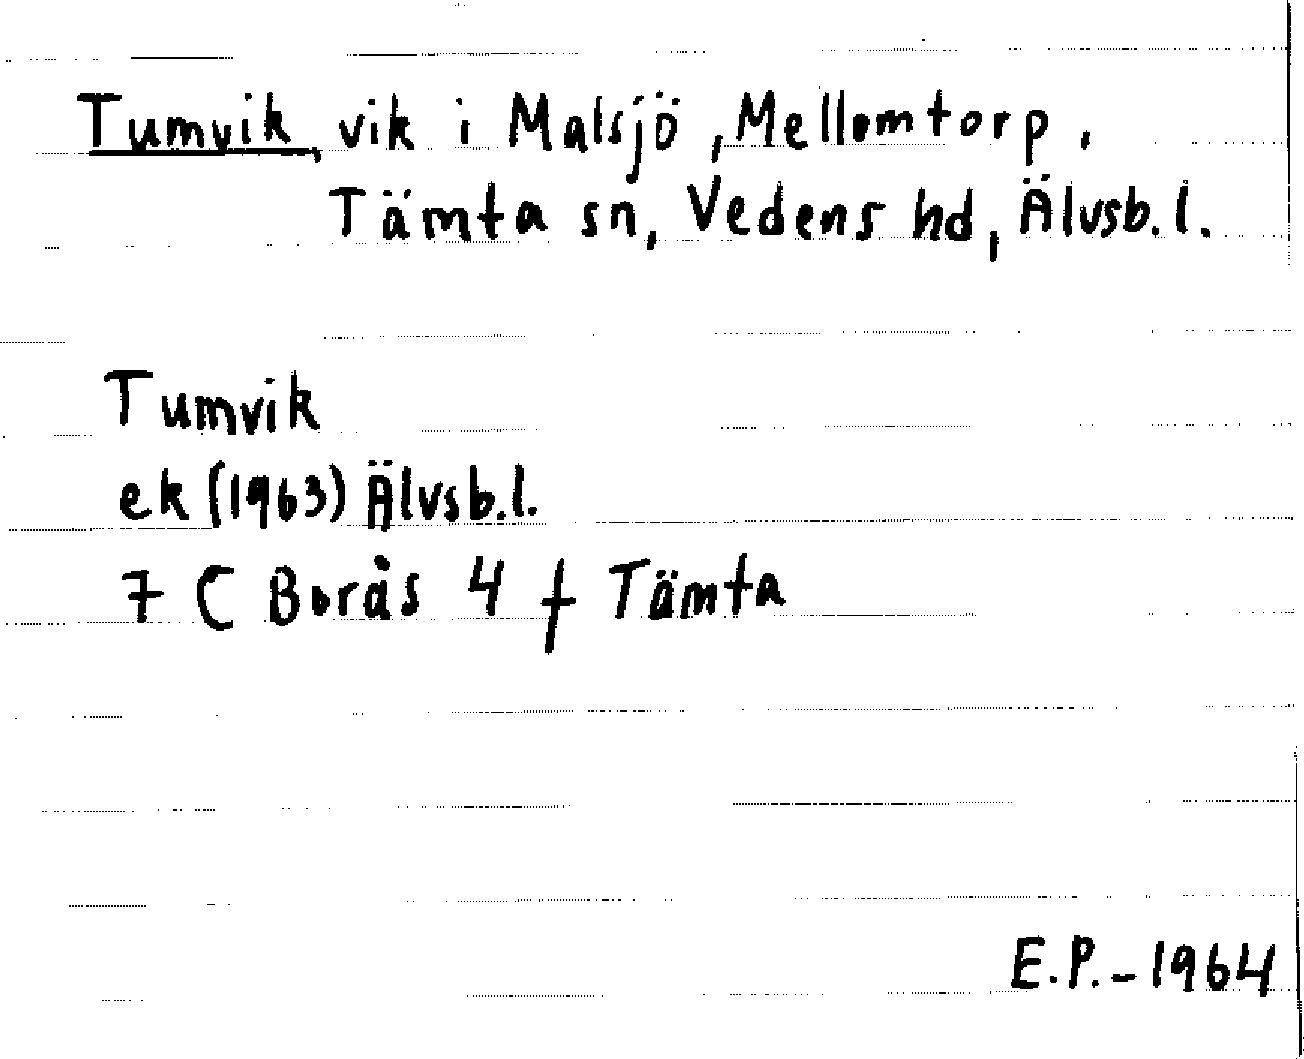 Tumvik, vik i Malsjö, Mellomtorp,
Tämta sn, Vedens hd, Älvsb.l.
Tumvik
ek (1963) Älvsb.l.
7 C Borås 4 f Tämta
E.P. - 1964